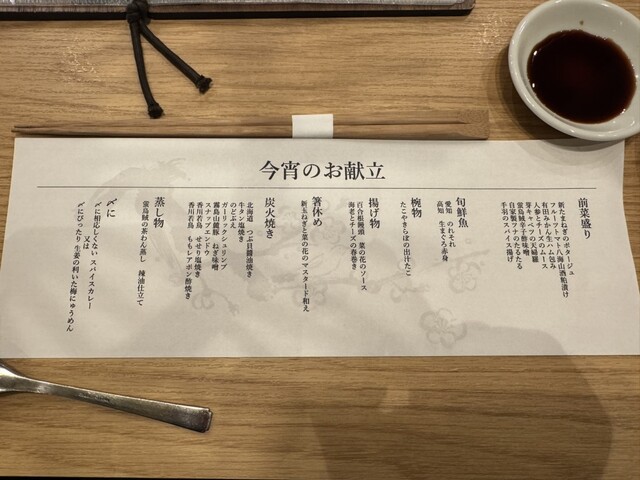 今宵のお献立
前菜盛り
新たまねぎのポタージュ
フルーツトマト八海山酒粕漬け
有田みかん生ハム包み
人参とチーズのムース
芽キャベツの天婦羅
蛍烏賊辛子酢味噌
自家製ツナのたるたる
手羽のスパイス揚げ
旬鮮魚
愛知 のれそれ
高知 生まぐろ赤身
椀物
たこやきらぼの出汁たこ
揚げ物
百合根饅頭 菜の花のソース
海老とチーズの春巻き
箸休め
新玉ねぎと菜の花のマスタード和え
炭火焼き
北海道 つぶ貝醤油焼き
牛タン塩焼き
のどぶえ
ガーリックシュリンプ
霧島山麓豚 ねぎ味噌
スナップエンドウ
香川若鳥 せせり塩焼き
香川若鳥 ももレアポン酢焼き
蒸し物
蛍烏賊の茶わん蒸し 辣油仕立て
〆に
〆に相応しくない スパイスカレー
又は
〆にぴったり 生姜の利いた梅にゅうめん